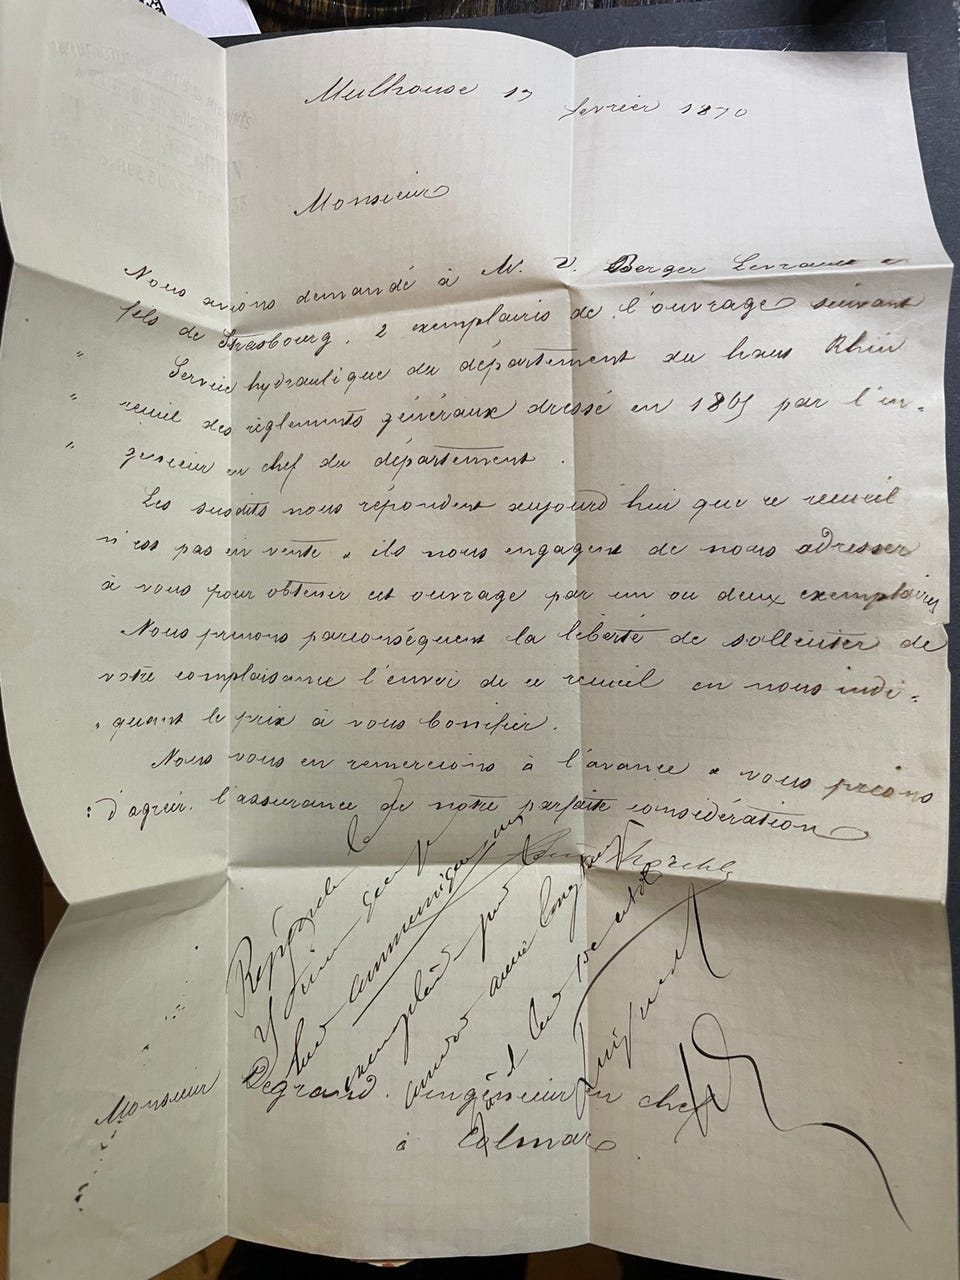 Mulhouse 17 fevrier 1870
Monsieur
Nous avions demandé à M. V. Berger Levrault &
fils de Strasbourg, 2 exemplaires de l'ouvrage suivant
" Service hydraulique du département du haut Rhin
" recueil des règlements généraux dressé en 1865 par l'in-
" génieur en chef du département.
Les susdits nous répondent aujourd'hui que ce recueil
n'est pas en vente & ils nous engagent de nous adresser
à vous pour obtenir cet ouvrage par un ou deux exemplaires
Nous prenons parconséquent la liberté de solliciter de
votre complaisance l'envoi de ce recueil en nous indi-
quant le prix à vous bonifier.
Nous vous en remercions à l'avance & vous prions
d'agréer l'assurance de notre parfaite considération
Répondre
leur communiquer un
exemplaire
Monsieur Degrand. ingénieur en chef
à Colmar